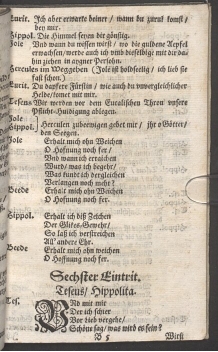 Eurit. Ich aber erwarte deiner / wann du zuruk komst /
bey mir.
Hippol. Die Himmel seyen dir günstig.
Iole Und wann du wissen wirst / wo die guldene Aepfel
erwachsen / werde auch ich vom dieselbige mit dir da-
hin ziehen in aigner Persohn.
Hercules im Weggehen (Iole ist holdseelig / ich lieb sie
fast schon.)
Eurit. Du dapfere Fürstin / wie auch du unvergleichlicher
Held / komet mit mir.
Teseus Wir werden vor den Eucalischen Thron unsere
Pflicht-Huldigung ablegen.
Iole
Hippol. Herculen zubewegen gebet mir / ihr o Götter /
den Seegen.
Iole Erhalt mich ohn Weichen
O Hofnung noch ser /
Und wann ich erraichen
Wurds / was ich begehr /
Was kundt ich dergleichen
Verlangen noch mehr?
Beede Erhalt mich ohn Weichen
O Hofnung noch ser.
Hippol. Erhalt ich diß Zeichen
Der Glükes-Gewehr /
So laß ich verstreichen
All' andere Ehr.
Beede Erhalt mich ohn weichen
O Hofnung noch ser.
Sechster Eintrit,
Teseus / Hippolita.
Tes. Und wie mir
Der ich hier
Vor lieb vergehe /
Schöne sag / was wird es seyn?
B 5 Wirst